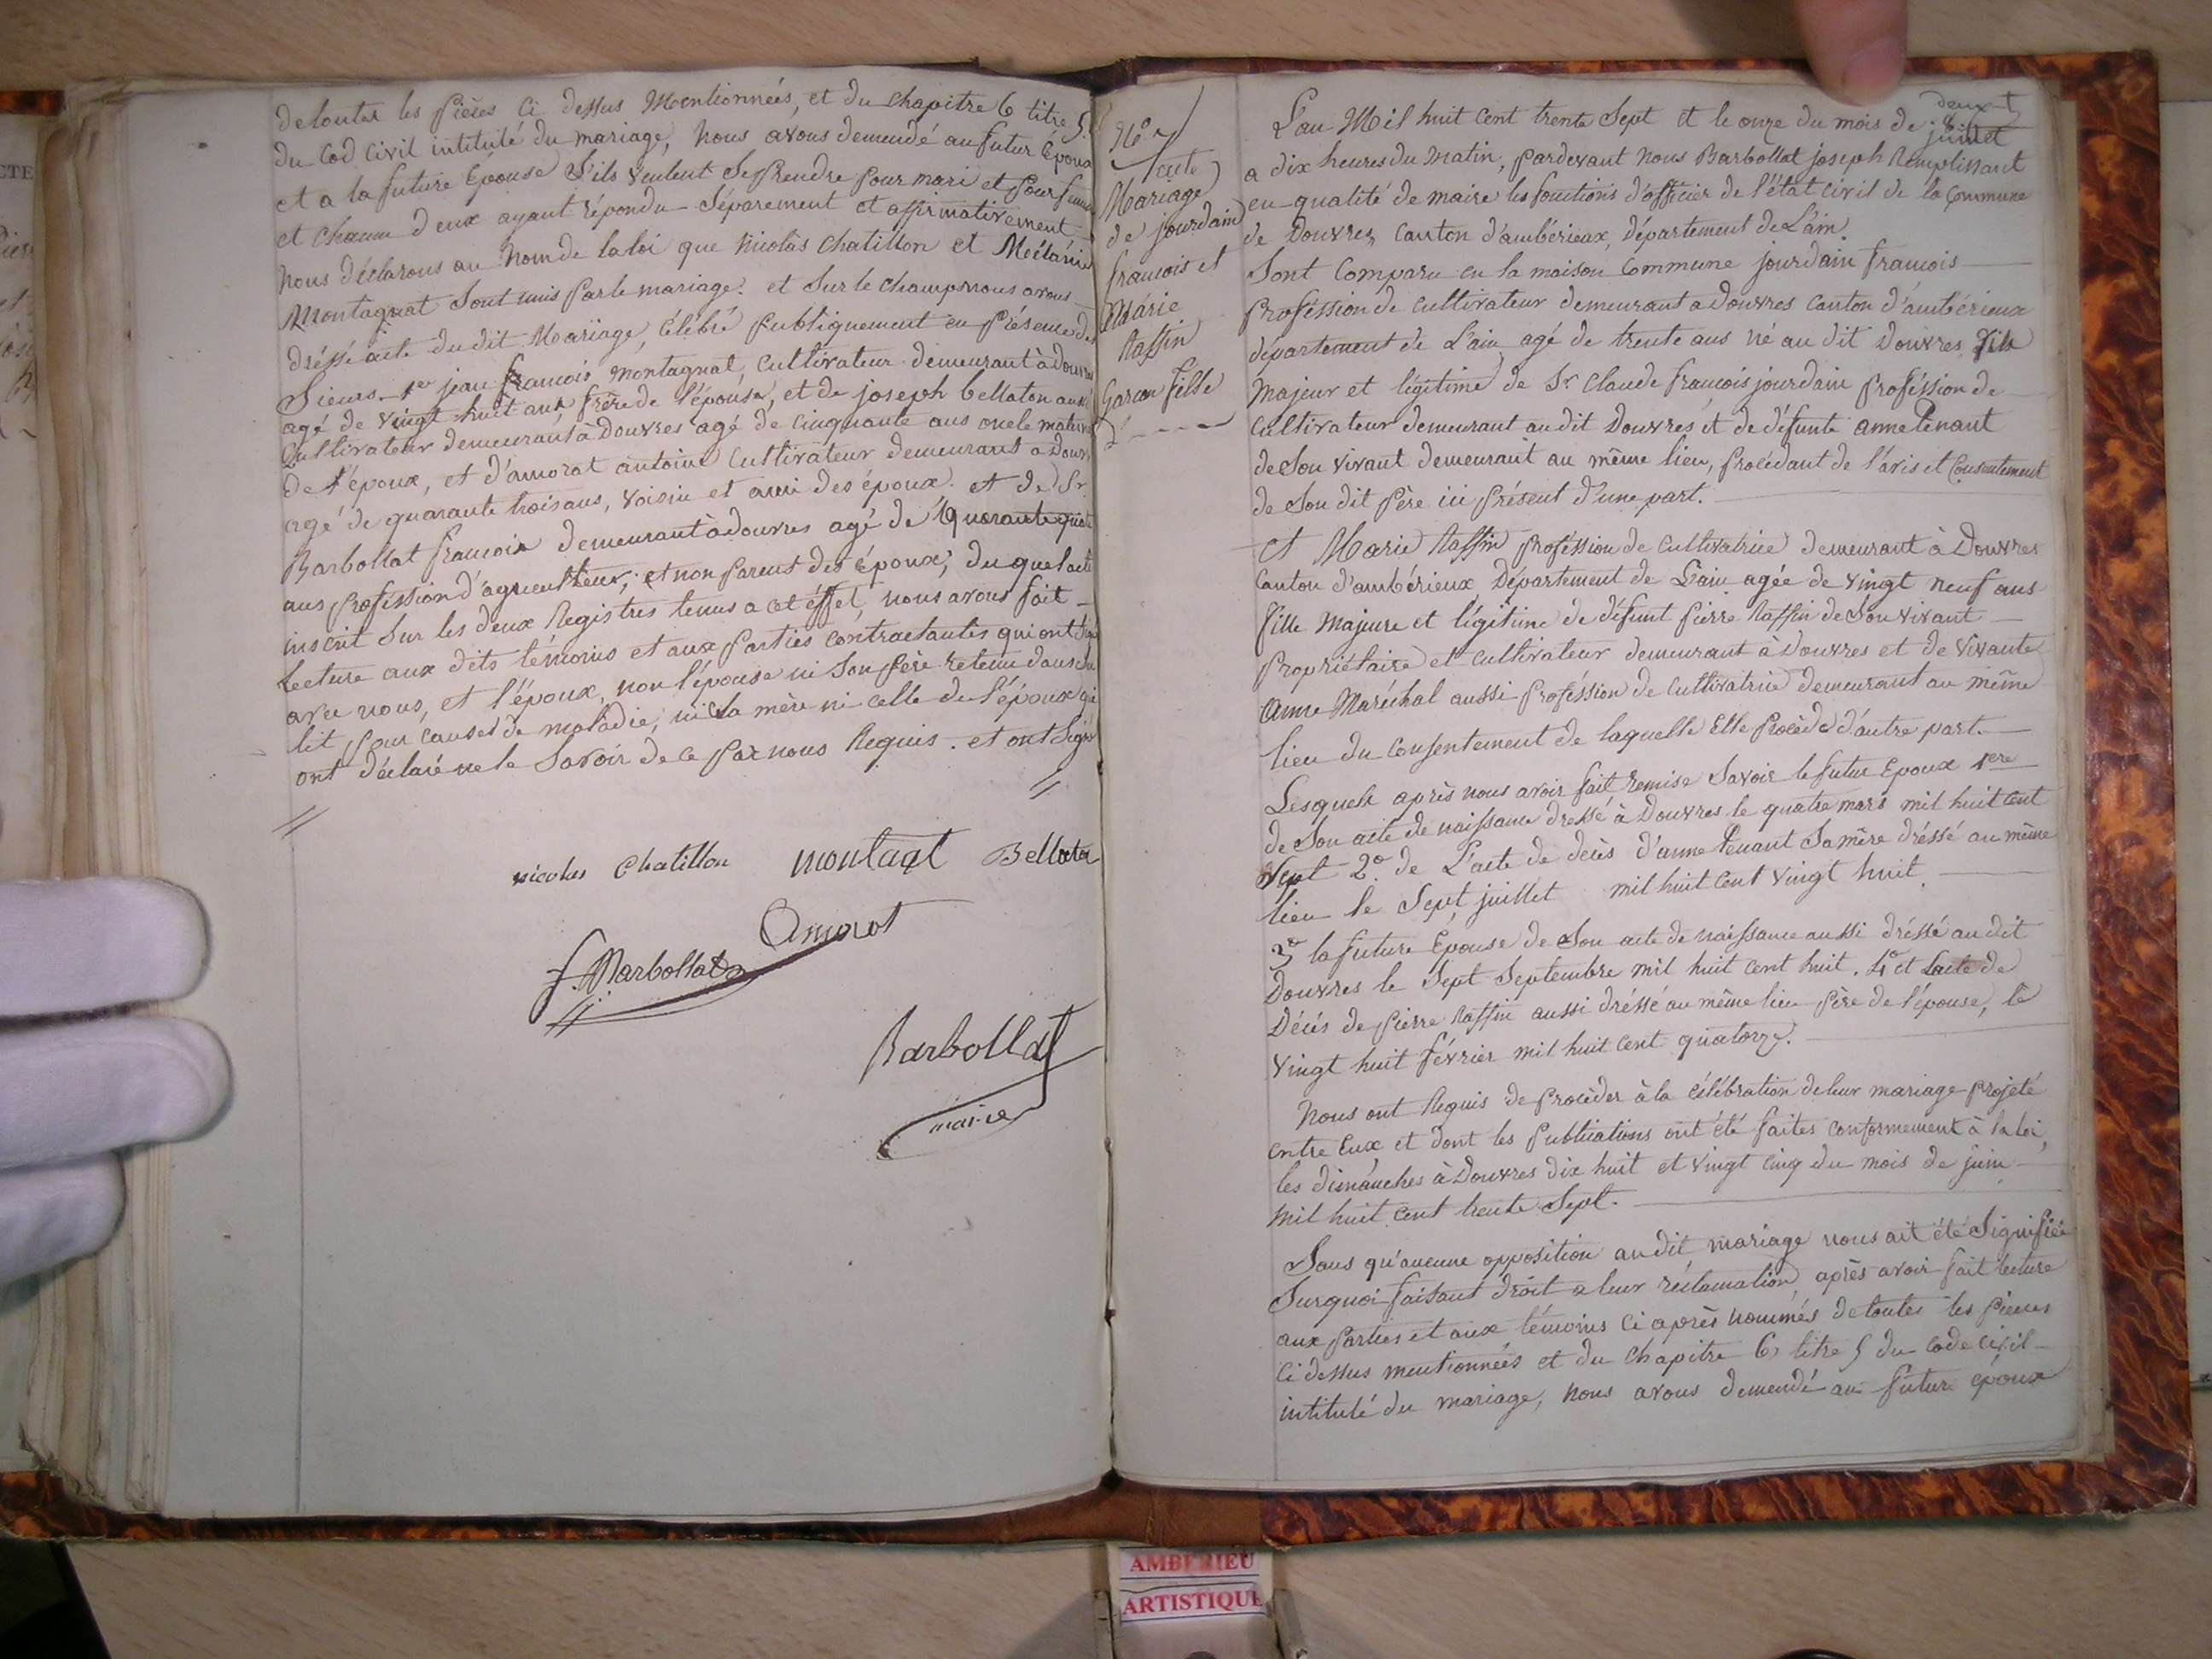 de toutes les pièces ci dessus Mentionnées, et du chapitre 6 titre 5
du Cod civil intitulé du mariage, nous avons demandé au futur époux
et a la future Epouse S'ils veulent Se Prendre pour mari et pour femme
et chacun d'eux ayant répondu Séparement et affirmativement
nous déclarons au Nom de la loi que Nicolas Chatillon et Mélanie
Montagnat Sont unis Par le mariage. et Sur le champ nous avons
dréssé acte du dit Mariage, célébré Publiquement en Présence de
Sieurs 1er jean francois montagnat, cultivateur demeurant à Douvres
agé de vingt huit ans frère de l'épouse, et de joseph bellaton aussi
Cultivateur demeurant à Douvres agé de cinquante ans oncle maternel
de l'époux, et d'amorot antoine Cultivateur demeurant a Douvres
agé de quarante trois ans, voisin et ami des époux. et de Sr
Barbollat francois demeurant à douvres agé de Quarante quatre
ans profession d'agriculteur, et non Parent des époux, du quel acte
inscrit Sur les deux Registres tenus a cet éffet, nous avons fait
Lecture aux dits témoins et aux Parties contractantes qui ont Signé
avec nous, et l'époux, non l'épouse ni Son père retenu dans Son
lit pour causes de maladie, ni la mère ni celle de l'époux qui
ont déclaré ne le Savoir de ce Par nous Requis. et ont Signé
nicolas Chatillon montagt Bellaton
Amorot
f. Barbollat
Barbollat
maire
No 7
acte
Mariage
de jourdain
francois et
Marie
Raffin
Garcon fille
L'an Mil huit Cent trente Sept et le onze du mois de juillet
deux
a dix heures du Matin, Pardevant Nous Barbollat joseph Remplissant
en qualité de maire les fonctions d'officier de l'état civil de la Commune
de Douvres, Canton d'ambérieux, Département de L'ain.
Sont Comparu en la maison Commune jourdain francois
Proféssion de Cultivateur demeurant a Douvres canton d'ambérieux
département de L'ain agé de trente ans né au dit Douvres fils
Majeur et légitime de Sr Claude francois jourdain Proféssion de
Cultivateur demeurant au dit Douvres et de défunte anne Tenant
de Son vivant demeurant au même lieu, Procédant de l'avis et Consentement
de Son dit Père ici Présent d'une part.
et Marie Raffin Proféssion de Cultivatrice demeurant à Douvres
Canton d'ambérieux Département de L'ain agée de vingt neuf ans
fille Majeure et légitime de défunt Pierre Raffin de Son vivant
Propriétaire et Cultivateur demeurant à Douvres et de vivante
Anne Maréchal aussi Proféssion de Cultivatrice demeurant au même
lieu du Consentement de laquelle Elle Procède d'autre part.
Lesquels après nous avoir fait remise Savoir le futur Epoux 1ere
de Son acte de naissance dressé à Douvres le quatre mars mil huit cent
Sept 2o. de L'acte de décès d'anne Tenant Sa mère dréssé au même
lieu le Sept juillet mil huit Cent vingt huit.
3o la future Epouse de Son acte de Naissance aussi dréssé au dit
Douvres le Sept Septembre mil huit cent huit. 4o et L'acte de
Décès de Pierre Raffin aussi dréssé au même lieu Père de l'épouse, le
vingt huit février mil huit Cent quatorze.
Nous ont Requis de Procèder à la célébration de leur mariage projeté
entre Eux et dont les Publications ont été faites conformement à la loi,
les dimanches à Douvres dix huit et vingt cinq du mois de juin
mil huit cent trente Sept.
Sans qu'aucune opposition au dit mariage nous ait été Signifiée
Surquoi faisant Droit a leur réclamation, après avoir fait lecture
aux Parties et aux témoins ci après nommés de toutes les pièces
ci dessus mentionnées et du Chapitre 6 titre 5 du code civil
intitulé du mariage, nous avons demandé au future époux
AMBERIEU
ARTISTIQUE